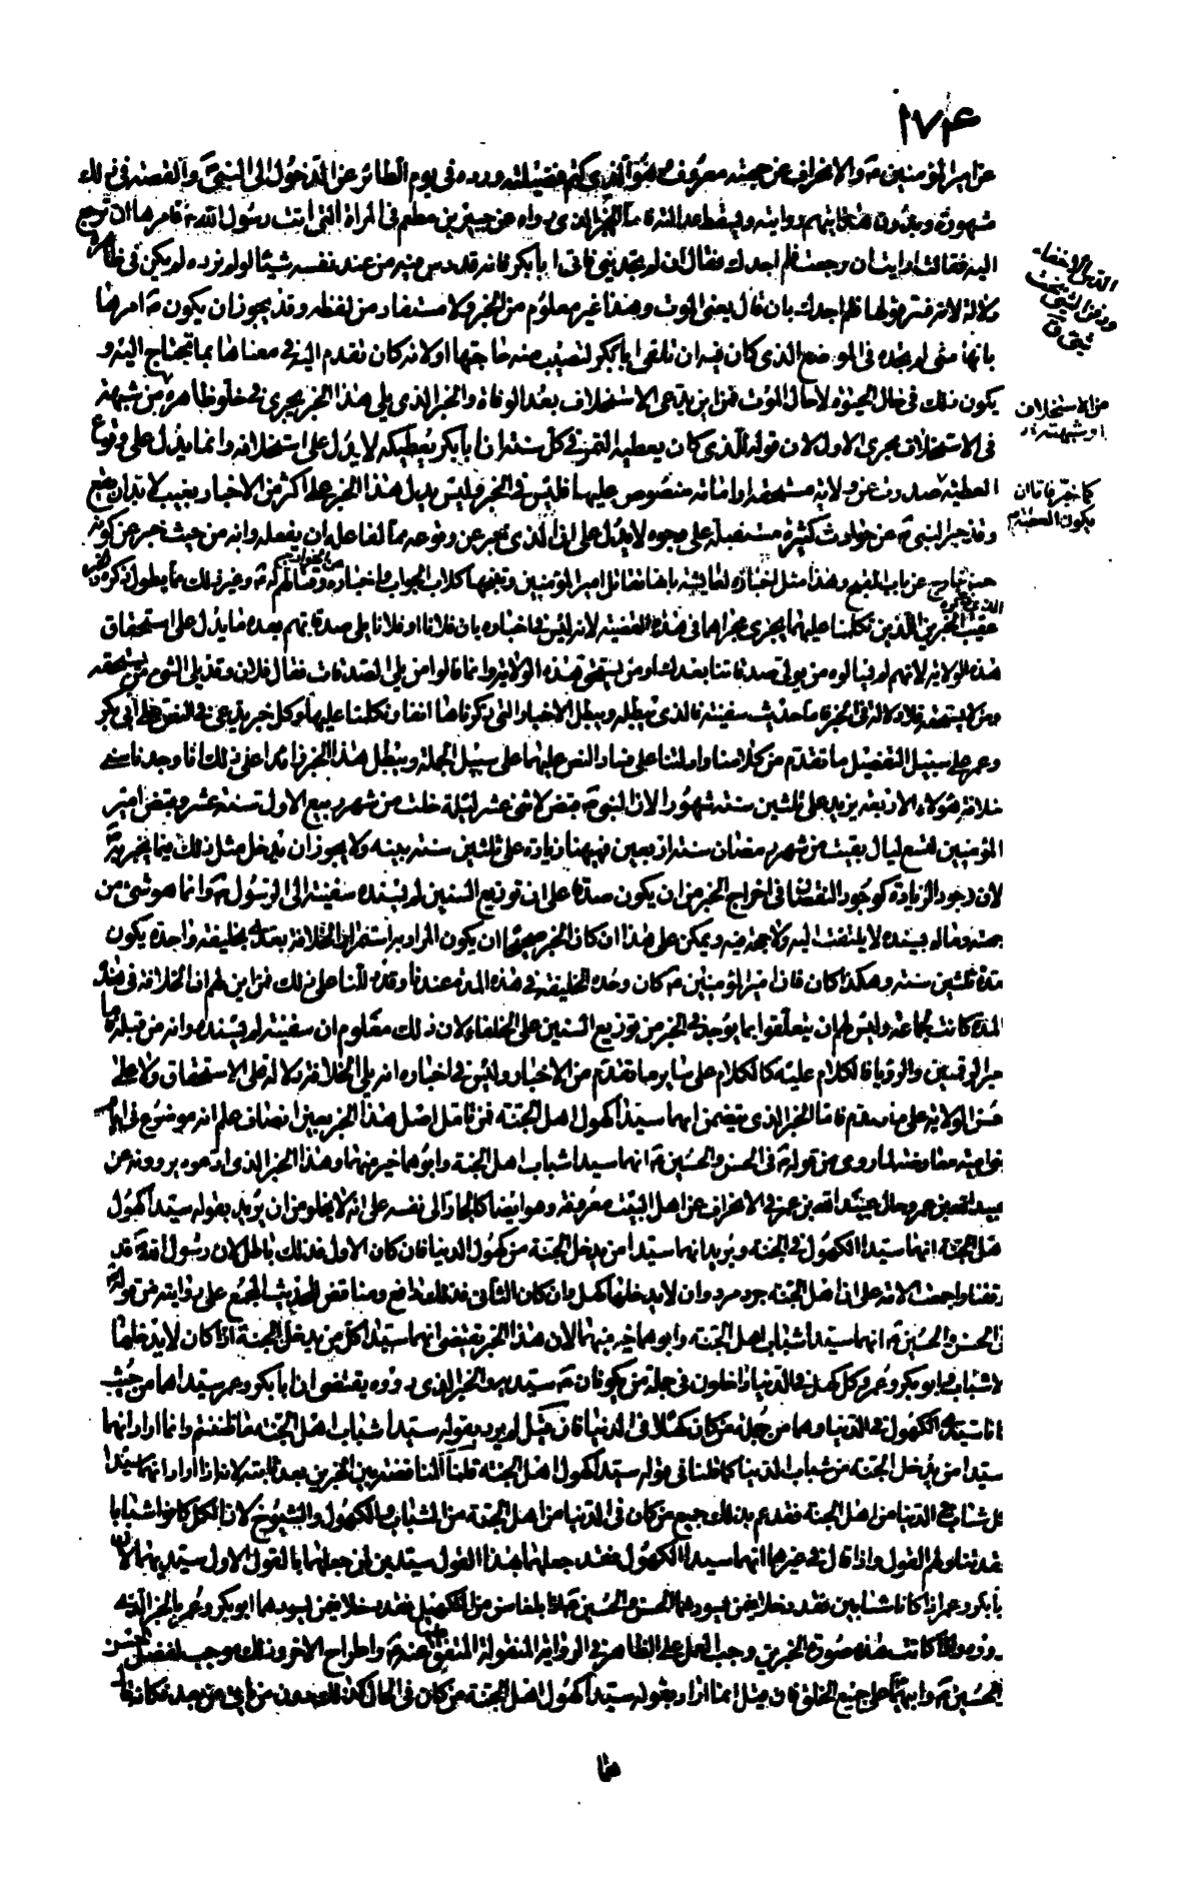 ١٧٤
عن امير المؤمنين ع والانحراف عن جهته معروف وهو الذي كتم فضيلته ورده في يوم الطائر عن الدخول الى النبي ص والقصة في ذلك
مشهورة وبدون هذا يتهم روايته ويسقط عدالته فاما الخبر الذي رواه عن جبير بن مطعم في المرأة التي اتت رسول الله ص فامرها ان ترجع
اليه فقالت ارايت ان رجعت فلم اجدك فقال ان لم تجديني فاتي ابا بكر فانه قد دس فيه من عند نفسه شيئا لو لم يزده لم يكن في ظاهره
دلالة لانه فسر قولها فلم اجدك بان قال يعني الموت وهذا غير معلوم من الخبر ولا مستفاد من لفظه وقد يجوز ان يكون ص امرها
بانها متى لم تجده في الموضع الذي كان فيه ان تلقى ابا بكر لتصيب منه حاجتها او لانه كان تقدم اليه في معناها بما تحتاج اليه و
يكون ذلك في حال الحيوة لا حال الموت فمن اين يدعى الاستخلاف بعد الوفاة والخبر الذي يلي هذا الخبر يجري في خلو ظاهره من شبهة
في الاستخلاف مجرى الاول لان قوله الذي كان يعطيه التمر في كل سنة ان ابا بكر يعطيكه لا يدل على استخلافه وانما يدل على وقوع
العطية صدرت عن ولاية مستحقة او امامة منصوص عليها فليس في الخبر وليس يدل هذا الخبر على اكثر من الاخبار بغيب لا بد ان يقع
وقد خبر النبي ص عن حوادث كثيرة مستقبلة على وجوه لا يدل على ان الذي خبر عن وقوعه مما لفاعله ان يفعله وانه من حيث خبر عن كونه
عن باب القبيح وهذا مثل اخباره لعايشة بانها تقاتل امير المؤمنين ع وتنبحها كلاب الحواب واخباره وقتالهم له ع وغير ذلك مما يطول ذكره
عقيب الخبرين الذين تكلمنا عليهما يجري مجراهما في هذه القضية لانه ليس في اخباره بان فلانا او فلانا يلي صدقاتهم بعده ما يدل على استحقاق
هذه الولاية لانهم لم يسالوه من يولي صدقاتنا بعدك او من يستحق هذه الولاية وانما قالوا من يلي الصدقات فقال فلان وقد يلي الشيء من يستحقه
ومن لا يستحقه فلا دلالة في الخبر فاما حديث سفينة فالذي يبطله ويبطل الاخبار التي ذكرناها انفا وتكلمنا عليها وكل خبر يدعى في النص على ابي بكر
وعمر على سبيل التفصيل ما تقدم من كلامنا وادلتنا على فساد النص عليهما على سبيل الجملة ويبطل هذا الخبر زائدا على ذلك انا وجدنا سني
خلافة هؤلاء الاربعة يزيد على ثلثين سنة شهورا لان النبي ص قبض لاثنتى عشر ليلة خلت من شهر ربيع الاول سنة عشر وقبض امير
المؤمنين لتسع ليال بقيت من شهر رمضان سنة اربعين فيهنا زيادة على ثلثين سنة بينه ولا يجوز ان يدخل مثل ذلك فيما يخبر به
لان وجود الزيادة كوجود النقصان في اخراج الخبر من ان يكون صدقا على ان توزيع السنين لم يسنده سفينة الى الرسول ص وانما هو شيء من
جهته وما لم يسنده لا يلتفت اليه ولا حجة فيه ويمكن على هذا ان كان الخبر صحيحا ان يكون المراد به استمرار الخلافة بعدي بخليفة واحد يكون
مدة ثلثين سنة وهكذا كان فان امير المؤمنين ع كان وحده الخليفة في هذه المدة عندنا وقد دللنا على ذلك فمن اين لهم ان الخلافة في هذه
المدة كانت لجماعة وليس لهم ان يتعلقوا بما يوجد في الخبر من توزيع السنين على الخلفاء لان ذلك معلوم ان سفينة لم يسنده وانه من قبله فاما
خبر الوقتين والرؤيا فالكلام عليه كالكلام على ساير ما تقدم من الاخبار وليس في اخباره انه يلي الخلافة دلالة على الاستحقاق ولا على
حسن الولاية على ما تقدم فاما الخبر الذي يتضمن انهما سيدا كهول اهل الجنة فمن تامل اصل هذا الخبر بعين انصاف علم انه موضوع في ايام
بني امية معارضة لما روي من قوله ص في الحسن والحسين ع انهما سيدا شباب اهل الجنة وابوهما خير منهما وهذا الخبر الذي ادعوه يروونه عن
عبيد الله بن عمر وحال عبيد الله بن عمر في الانحراف عن اهل البيت معروفة وهو ايضا كالجار الى نفسه على انه لا يخلو من ان يريد بقوله سيدا كهول
اهل الجنة انهما سيدا الكهول في الجنة ويريد انهما سيدا من يدخل الجنة من كهول الدنيا فان كان الاول فذلك باطل لان رسول الله ص قد
وقفنا واجمعت الامة على ان اهل الجنة جرد مرد وان لا يدخلها كهل وان كان الثاني فذلك دافع ومناقض للحديث المجمع على روايته من قوله
في الحسن والحسين ع انهما سيدا شباب اهل الجنة وابوهما خير منهما لان هذا الخبر يقتضي انهما سيدا كل من يدخل الجنة اذا كان لا يدخلها
الا شباب وابو بكر وعمر وكل كهل في الدنيا داخلون في جملة من يكونان ع سيديه والخبر الذي رووه يقتضي ان ابا بكر وعمر سيداهما من حيث
كانا سيدي الكهول في الدنيا وهما من جملة من كان كهلا في الدنيا فان قيل لم يرد بقوله سيدا شباب اهل الجنة ما ظننتم وانما اراد انهما
سيدا من يدخل الجنة من شباب الدنيا كما قلنا في قوله سيدا كهول اهل الجنة قلنا المناقضة بين الخبرين بعد ثابتة لانه اذا اراد انهما سيدا
كل شباب في الدنيا من اهل الجنة فقد عم بذلك جميع من كان في الدنيا من اهل الجنة من الشباب والكهول والشيوخ لان الكل كانوا شبابا
فقد تناولهم القول واذا قال في غيرهما انهما سيدا الكهول فقد جعلهما بهذا القول سيدين لمن جعلهما بالقول الاول سيديهما لان
ابا بكر وعمر اذا كانا شابين فقد دخلا فيمن يسودهما الحسن والحسين ع اذا بلغا سن التكهل فقد دخلا فيمن يسودهما ابو بكر وعمر بالخبر الذي
رووه واذا كانت هذه صورة الخبرين وجب العمل على الظاهر في الرواية المنقولة المتفق عليها عنه ع واطراح الاخر وذلك موجب لفضل الحسن
والحسين ع وابيهما على جميع الخلق فان قيل انما اراد بقوله سيدا كهول اهل الجنة من كان في الحال كذلك دون من ياتي من بعد فكانه قال
هما
من الاستخلاف
او شبهته
كما خبر فاما ان
يكون العطية